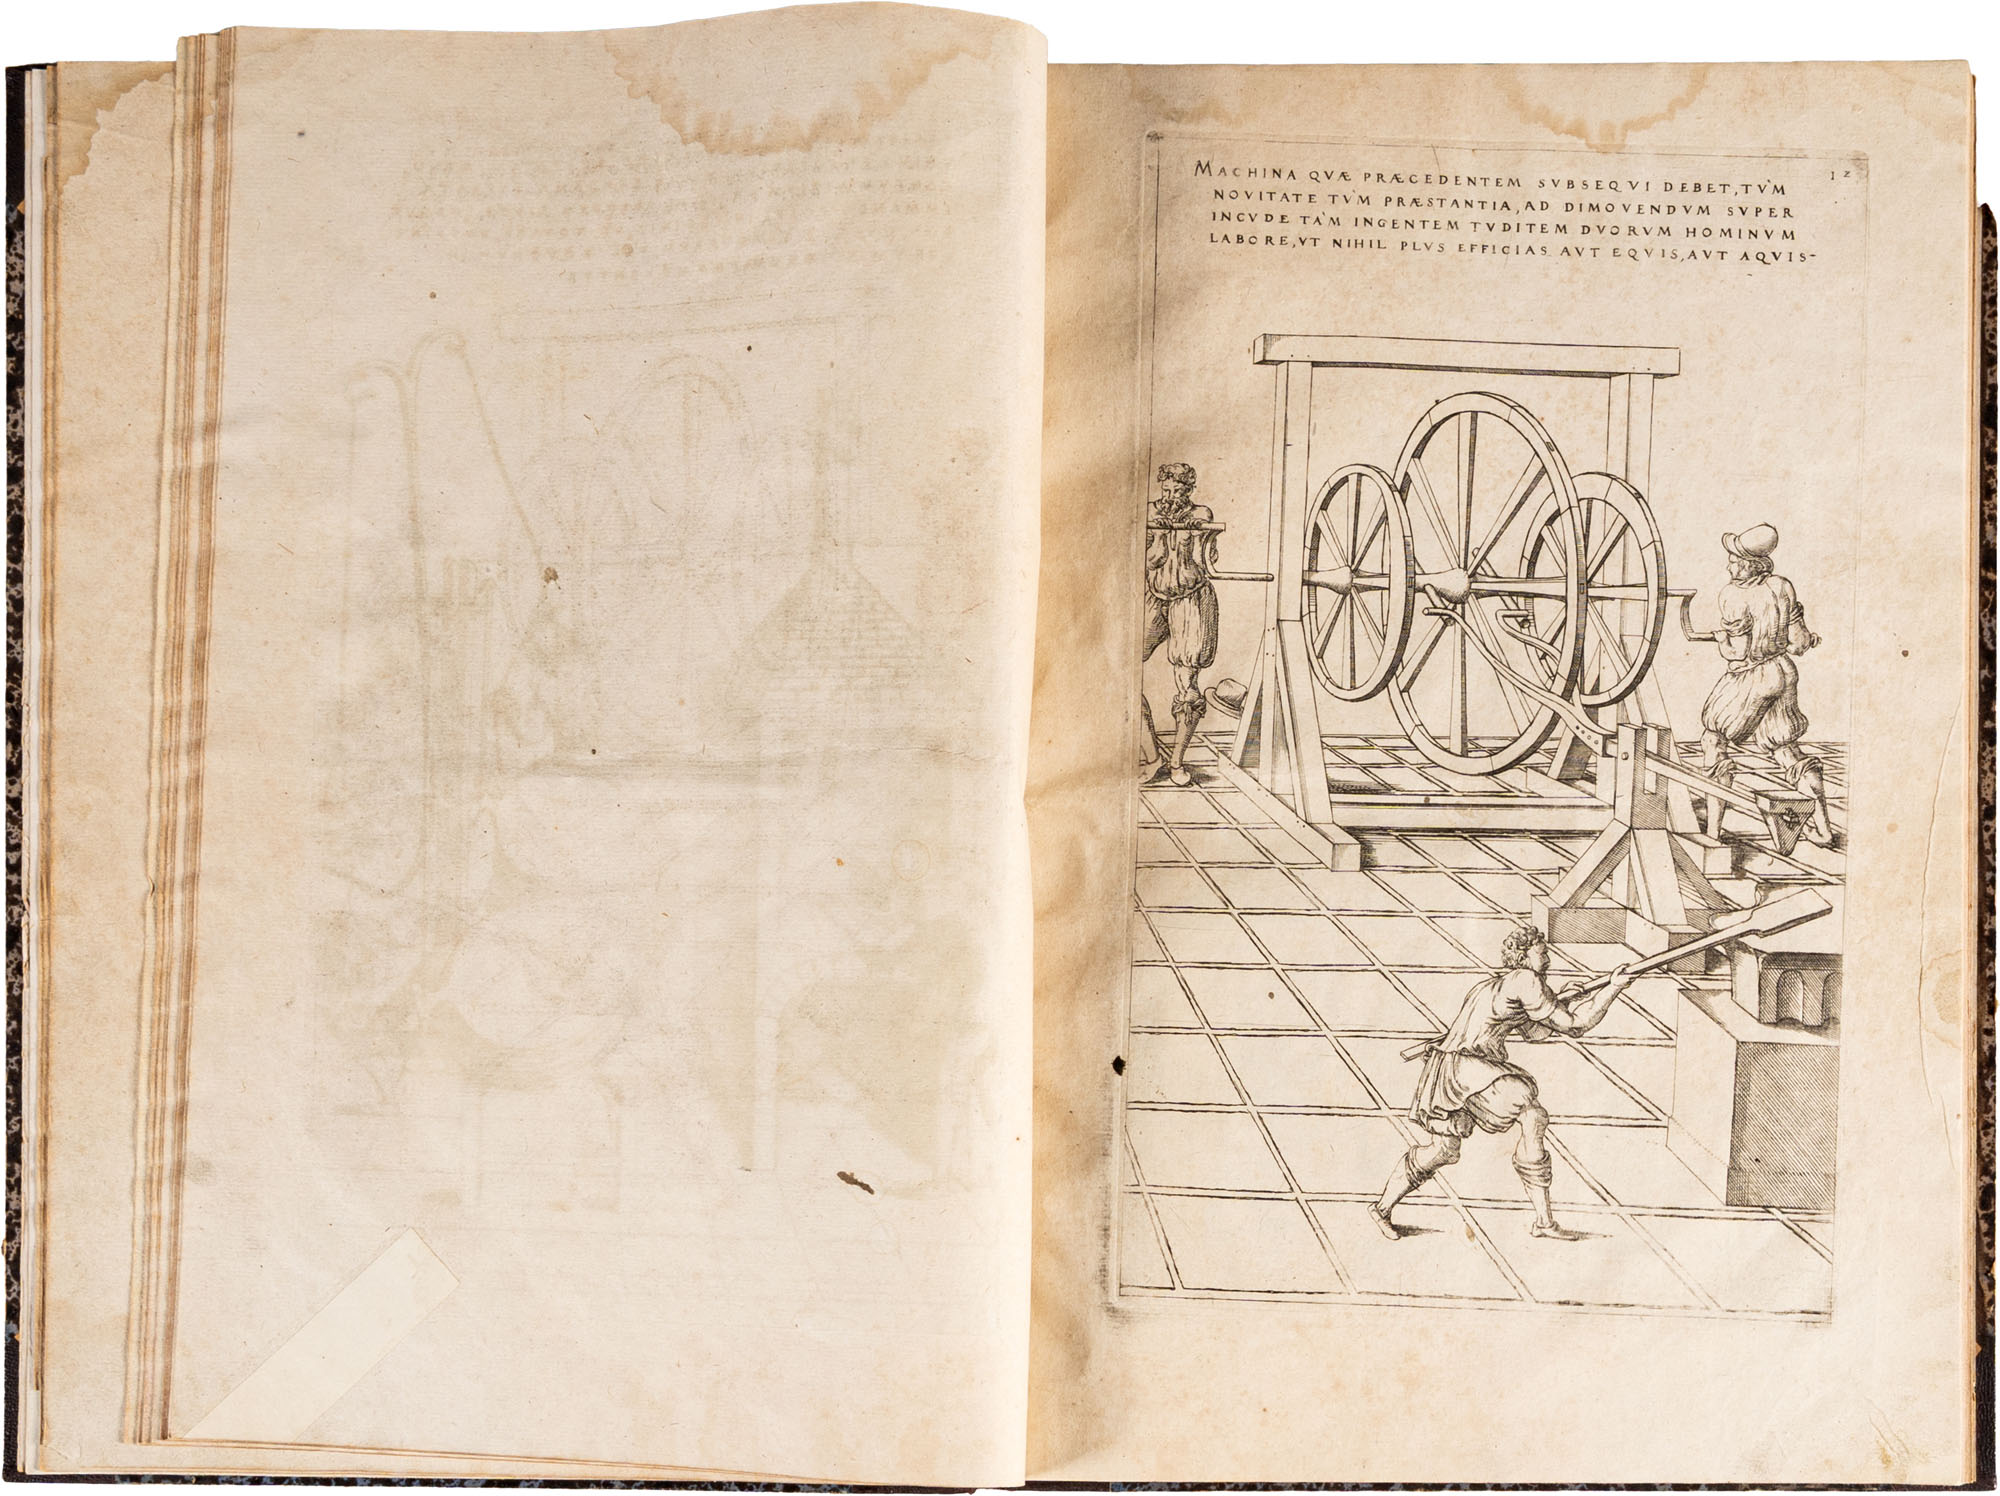 12
MACHINA QVÆ PRÆCEDENTEM SVBSEQVI DEBET, TV̀M
NOVITATE TV̀M PRÆSTANTIA, AD DIMOVENDVM SVPER
INCVDE TÀM INGENTEM TVDITEM DVORVM HOMINVM
LABORE, VT NIHIL PLVS EFFICIAS AVT EQVIS, AVT AQVIS-